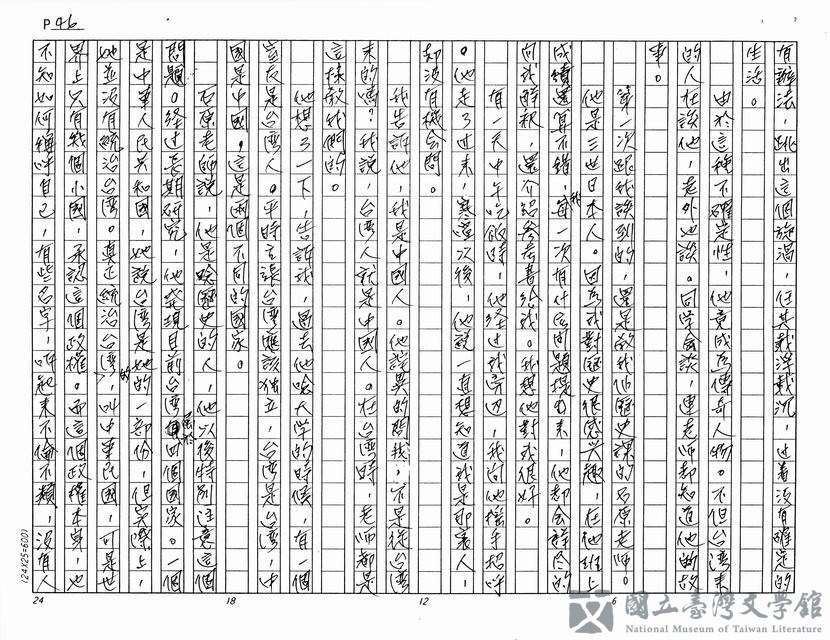 P 46
有辦法，跳出這個旋渦，任其載浮載沉，过着沒有確定的
生活。
由於這種不確定性，他竟成為傳奇人物。不但台湾來
的人在談他，老外也談。同学会談，連老师都知道他的故
事。
第一次跟我談到的，還是教我们歷史課的石原老师。
他是三世日本人。因為我對歷史很感兴趣，在他班上
成績還算不錯，我每一次有什应问題提出來，他都会詳尽的
向我解釈，還介紹参考書给我。我想他對我很好。
有一天中午吃飯時，他经过我旁边，我向他搖手招呼
。他走了过來，寒喧次後，他說一直想知道我是那裏人，
却沒有机会問。
我告訴他，我是中國人。他詫異的問我，不是從台湾
來的嗎？我說，台湾人就是中國人。在台湾時，老师都是
這樣教我们的。
他想了一下，告訴我，過去他唸大学的時候，有一個
豈友是台湾人。平時主張台湾應該独立，台湾是台湾，中
國是中國，這是兩個不同的國家。
石原老师說，他是唸歷史的人，他以後特別注意這個
問題。经过長期研究，他発現目前台湾属於四個國家。一個
是中華人民共和國，她說台湾是她的一部份，但实際上，
她並沒有統治台湾。真正統治台湾的，叫中華民國，可是世
界上只有幾個小國，承認這個政權。而這個政權本身，也
不知如何稱呼自己，有些名字，叫起來不倫不類，沒有人
(24X25=600)
24 18 12 6
國立臺灣文學館
National Museum of Taiwan Literature